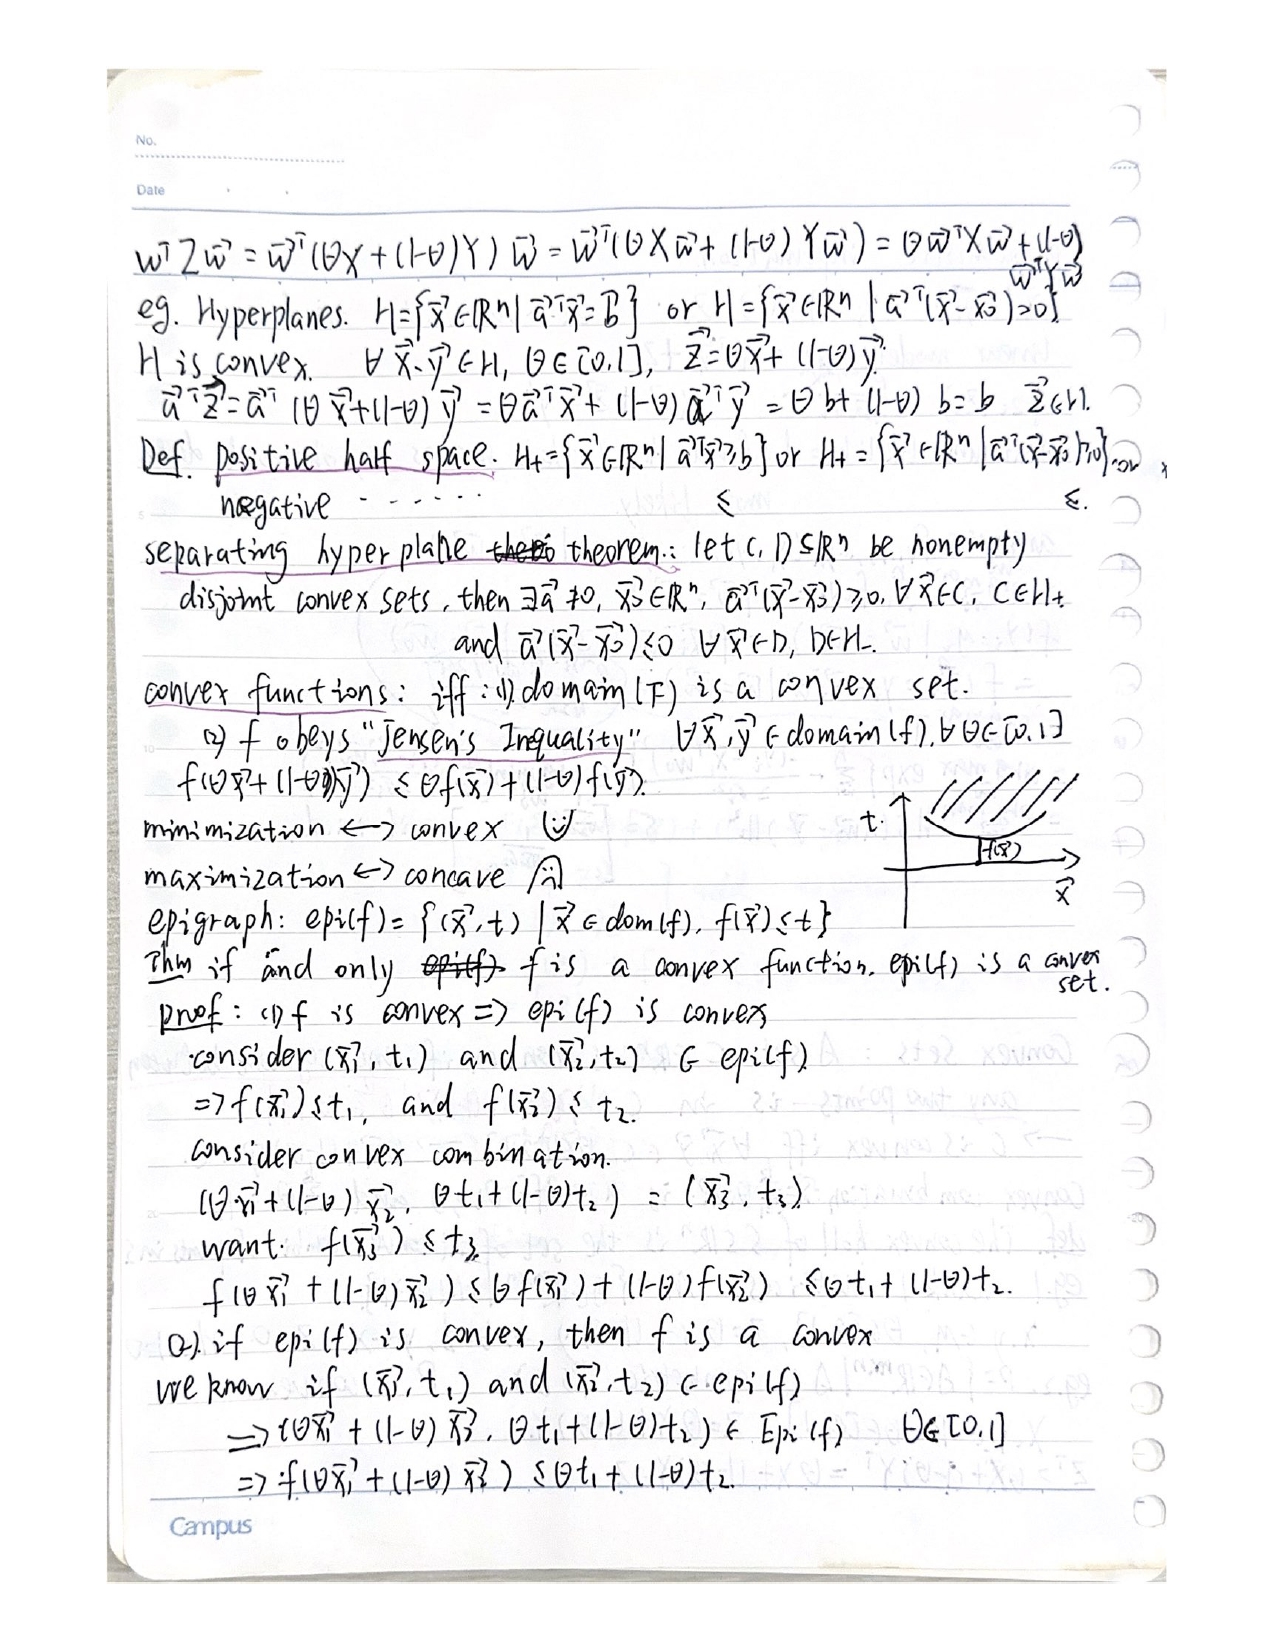 No.
Date
w⃗ᵀZw⃗ = w⃗ᵀ(θX+(1-θ)Y) w⃗ = w⃗ᵀ(θXw⃗ + (1-θ)Yw⃗) = θw⃗ᵀXw⃗ + (1-θ)
w⃗ᵀYw⃗
eg. Hyperplanes. H={x⃗∈ℝⁿ| a⃗ᵀx⃗=b} or H={x⃗∈ℝⁿ | a⃗ᵀ(x⃗-x⃗₀)=0}
H is convex. ∀ x⃗, y⃗∈H, θ∈[0,1], z⃗=θx⃗+(1-θ)y⃗.
a⃗ᵀz⃗=a⃗ᵀ (θx⃗+(1-θ) y⃗ =θa⃗ᵀx⃗+(1-θ)a⃗ᵀy⃗ = θb+(1-θ) b= b z⃗∈H.
Def. positive half space. H₊={x⃗∈ℝⁿ| a⃗ᵀx⃗≥b} or H₊={x⃗∈ℝⁿ |a⃗ᵀ(x⃗-x⃗₀)≥0} or
negative - - - - - - ≤ ≤.
separating hyperplane theorem: let C, D⊆ℝⁿ be nonempty
disjoint convex sets, then ∃a⃗≠0, x⃗₀∈ℝⁿ, a⃗ᵀ(x⃗-x⃗₀)≥0, ∀x⃗∈C, C∈H₊
and a⃗ᵀ(x⃗-x⃗₀)≤0 ∀x⃗∈D, D∈H₋.
convex functions: iff: (1). domain (F) is a convex set.
(2) f obeys "Jensen's Inquality" ∀x⃗,y⃗∈domain(f), ∀θ∈[0,1]
f(θx⃗+(1-θ)y⃗) ≤ θf(x⃗)+(1-θ)f(y⃗).
t.
f(x⃗)
x⃗
minimization ⟷ convex
maximization ⟷ concave
epigraph: epi(f)= {(x⃗,t) | x⃗∈dom(f), f(x⃗)≤t}
Thm if and only epi(f) f is a convex function, epi(f) is a convex
set.
proof: (1) f is convex ⇒ epi(f) is convex
consider (x⃗₁, t₁) and (x⃗₂, t₂) ∈ epi(f)
⇒f(x⃗₁)≤t₁, and f(x⃗₂) ≤ t₂.
consider convex combination.
(θx⃗₁+(1-θ)x⃗₂, θt₁+(1-θ)t₂) = (x⃗₃, t₃).
want: f(x⃗₃) ≤ t₃
f(θx⃗₁+(1-θ)x⃗₂) ≤ θf(x⃗₁)+(1-θ)f(x⃗₂) ≤θt₁+(1-θ)t₂.
(2). if epi(f) is convex, then f is a convex
we know if (x⃗₁, t₁) and (x⃗₂, t₂)∈epi(f)
⇒(θx⃗₁+(1-θ)x⃗₂, θt₁+(1-θ)t₂)∈ Epi(f) θ∈[0,1]
⇒f(θx⃗₁+(1-θ)x⃗₂) ≤θt₁+(1-θ)t₂.
Campus